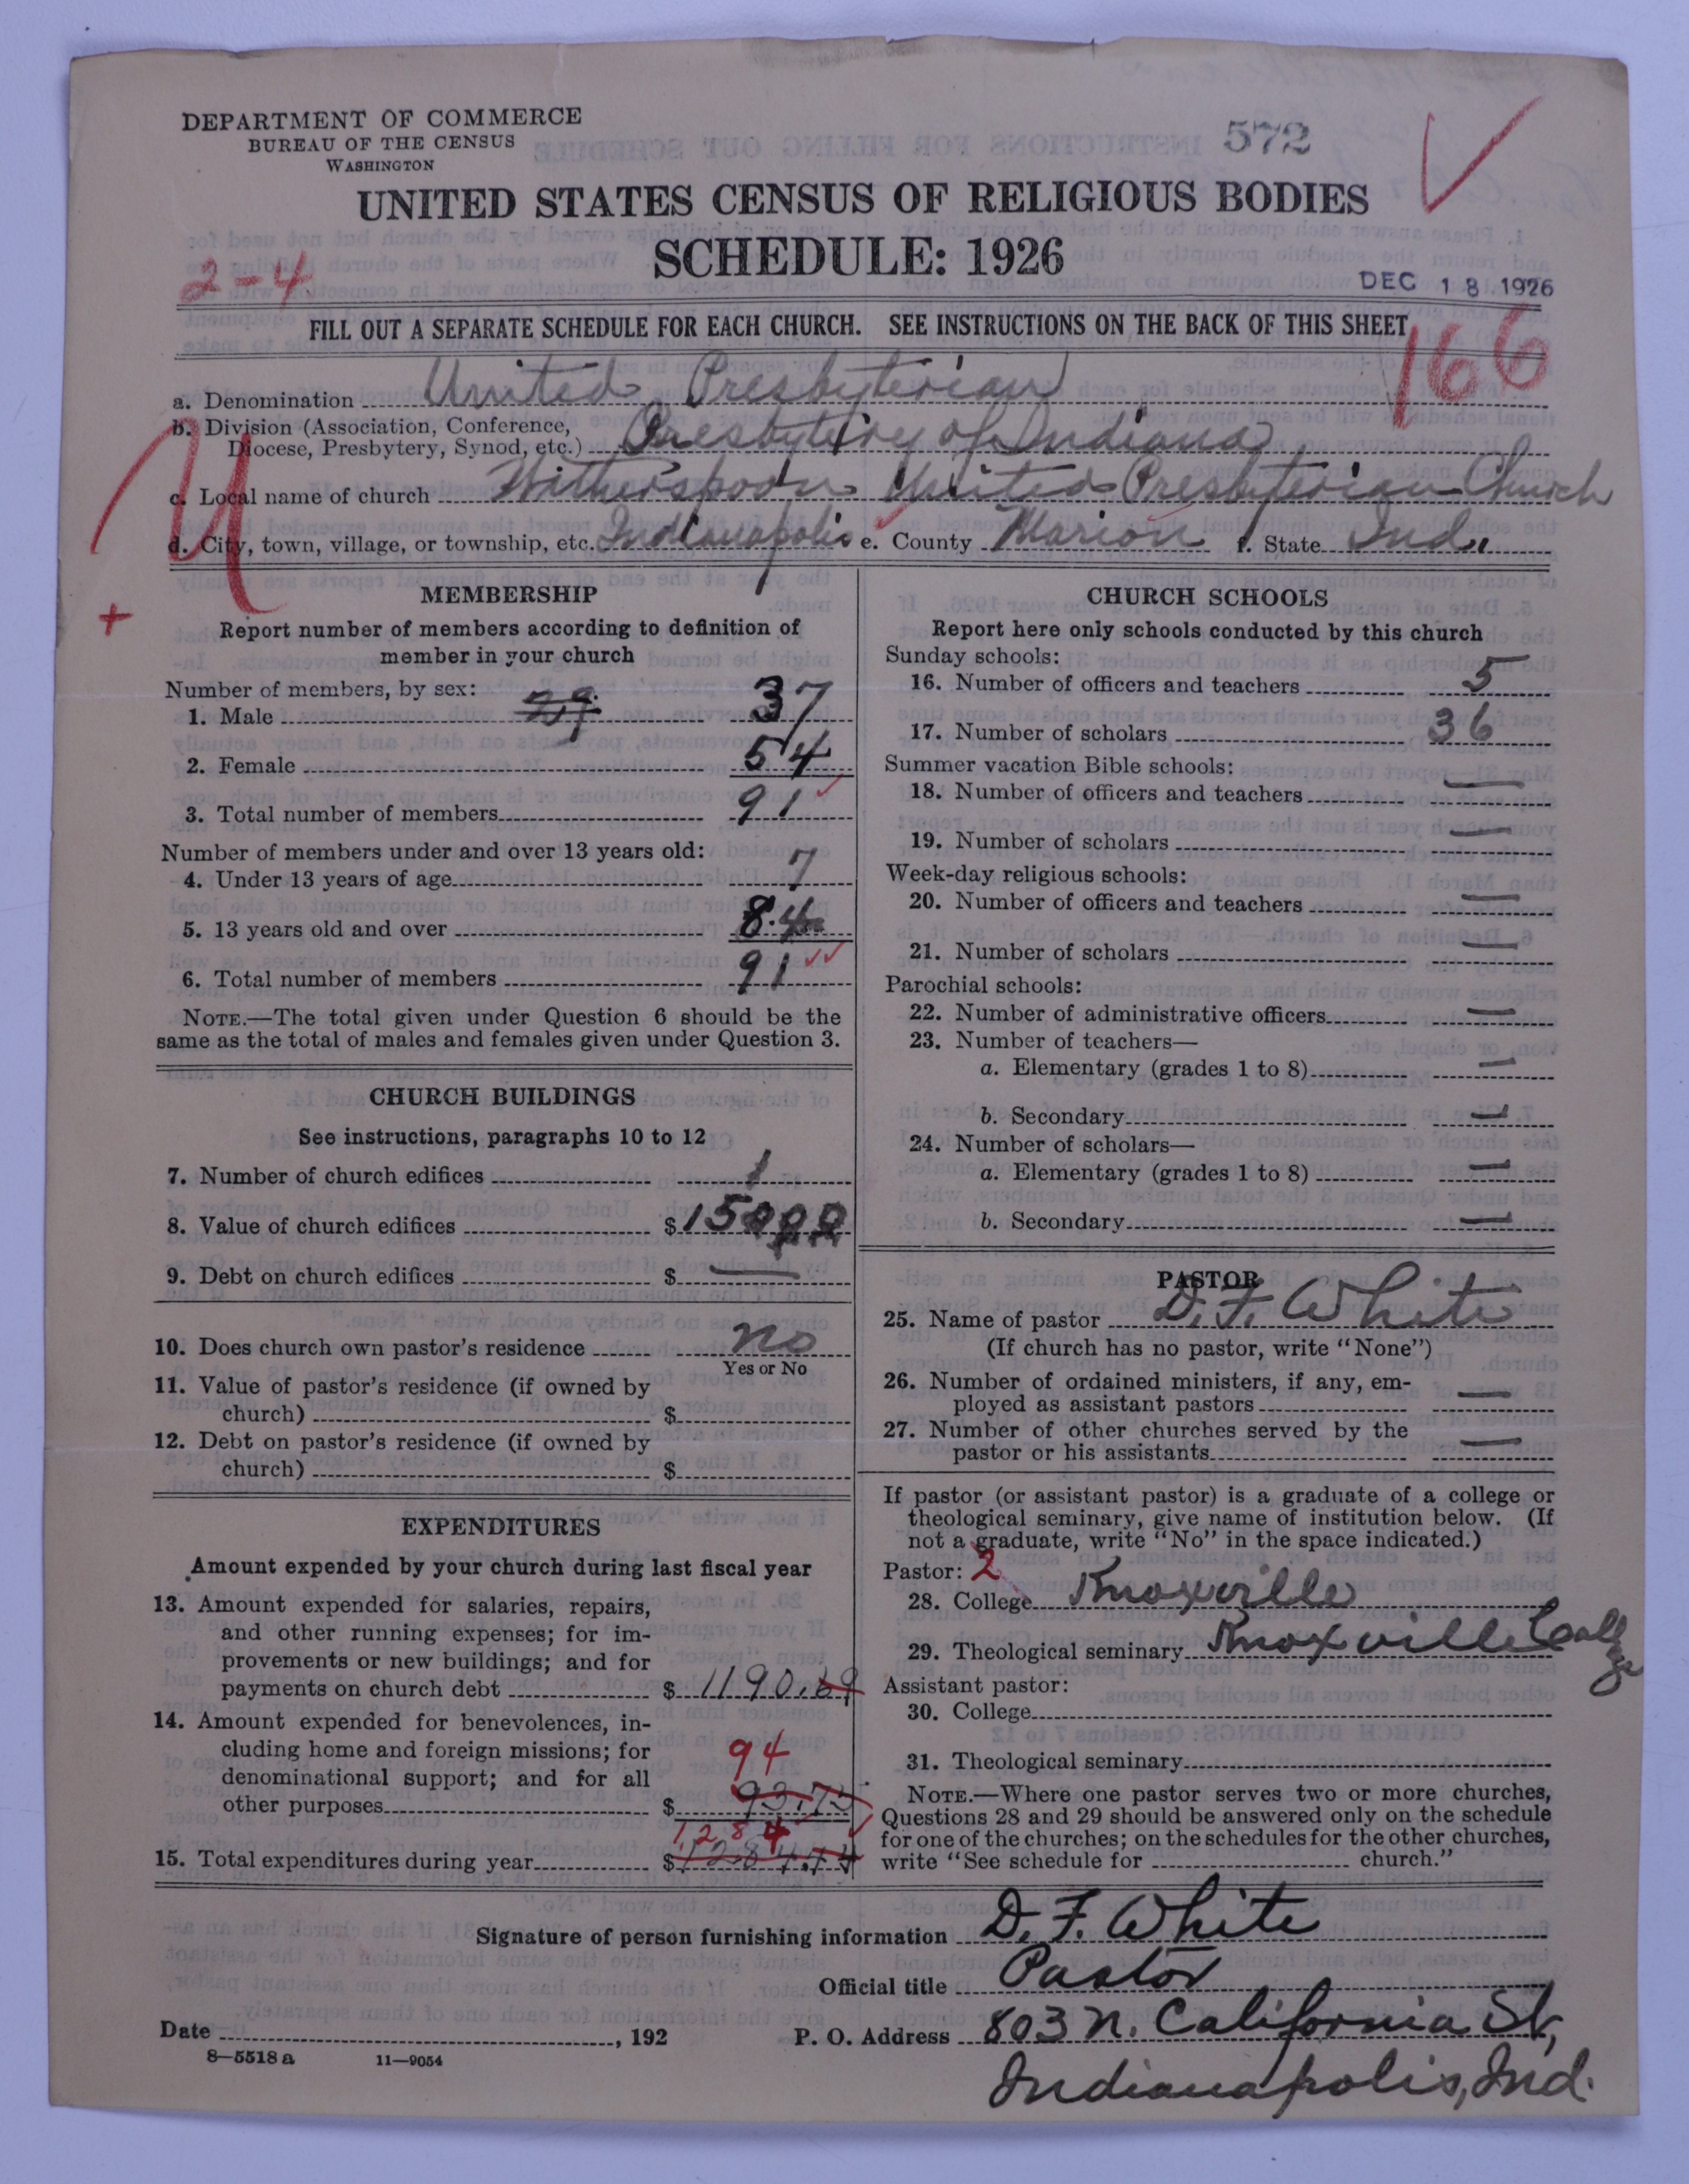 DEPARTMENT OF COMMERCE
BUREAU OF THE CENSUS
WASHINGTON
572
UNITED STATES CENSUS OF RELIGIOUS BODIES
SCHEDULE: 1926
2-4
DEC 18 1926
FILL OUT A SEPARATE SCHEDULE FOR EACH CHURCH. SEE INSTRUCTIONS ON THE BACK OF THIS SHEET
166
a. Denomination United Presbyterian
b. Division (Association, Conference,
Diocese, Presbytery, Synod, etc.) Presbytery of Indiana
c. Local name of church Witherspoon United Presbyterian Church
d. City, town, village, or township, etc. Indianapolis e. County Marion f. State Ind.
+
MEMBERSHIP
Report number of members according to definition of
member in your church
Number of members, by sex:
1. Male 37
2. Female 54
3. Total number of members 91
Number of members under and over 13 years old:
4. Under 13 years of age 7
5. 13 years old and over 84
6. Total number of members 91
NOTE.—The total given under Question 6 should be the
same as the total of males and females given under Question 3.
CHURCH BUILDINGS
See instructions, paragraphs 10 to 12
7. Number of church edifices 1
8. Value of church edifices $15000
9. Debt on church edifices $ —
10. Does church own pastor's residence no
Yes or No
11. Value of pastor's residence (if owned by
church) $
12. Debt on pastor's residence (if owned by
church) $
EXPENDITURES
Amount expended by your church during last fiscal year
13. Amount expended for salaries, repairs,
and other running expenses; for im-
provements or new buildings; and for
payments on church debt $ 1190.69
14. Amount expended for benevolences, in-
cluding home and foreign missions; for
denominational support; and for all
94
other purposes $ 93.75
1284
15. Total expenditures during year $ 1284.44
CHURCH SCHOOLS
Report here only schools conducted by this church
Sunday schools:
16. Number of officers and teachers 5
17. Number of scholars 36
Summer vacation Bible schools:
18. Number of officers and teachers —
19. Number of scholars —
Week-day religious schools:
20. Number of officers and teachers —
21. Number of scholars —
Parochial schools:
22. Number of administrative officers —
23. Number of teachers—
a. Elementary (grades 1 to 8) —
b. Secondary —
24. Number of scholars—
a. Elementary (grades 1 to 8) —
b. Secondary —
PASTOR
25. Name of pastor D. F. White
(If church has no pastor, write "None")
26. Number of ordained ministers, if any, em-
ployed as assistant pastors —
27. Number of other churches served by the
pastor or his assistants —
If pastor (or assistant pastor) is a graduate of a college or
theological seminary, give name of institution below. (If
not a graduate, write "No" in the space indicated.)
Pastor: 2
28. College Knoxville
29. Theological seminary Knoxville College
Assistant pastor:
30. College
31. Theological seminary
NOTE.—Where one pastor serves two or more churches,
Questions 28 and 29 should be answered only on the schedule
for one of the churches; on the schedules for the other churches,
write "See schedule for church."
Signature of person furnishing information D. F. White
Official title Pastor
Date , 192 P. O. Address 803 N. California St,
8—5518 a 11—9054
Indianapolis, Ind.